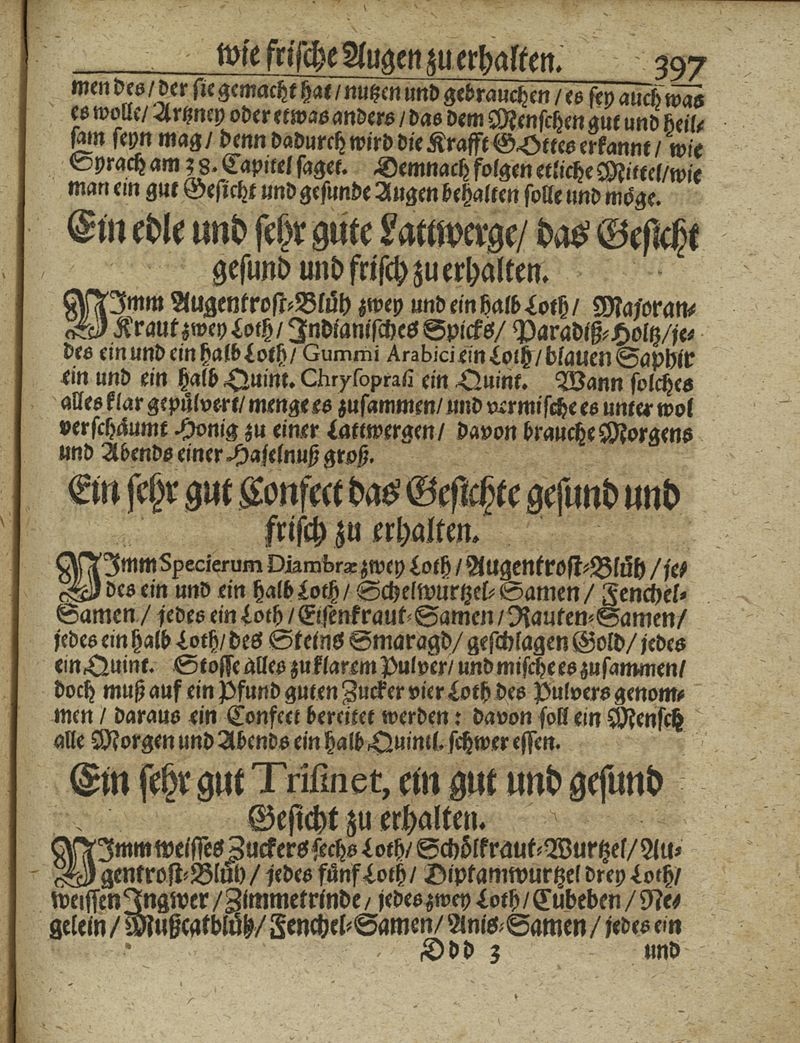 wie frische Augen zu erhalten. 397
men des / der sie gemacht hat / nutzen und gebrauchen / es sey auch was
es wolle / Artzney oder etwas anders / das dem Menschen gut und heil⸗
sam seyn mag / denn dadurch wird die Krafft GOttes erkannt / wie
Syrach am 38. Capitel saget. Demnach folgen etliche Mittel / wie
man ein gut Gesicht und gesunde Augen behalten solle und möge.
Ein edle und sehr gute Lattwerge / das Gesicht
gesund und frisch zu erhalten.
NImm Augentrost⸗Blüh zwey und ein halb Loth / Majoran⸗
Kraut zwey Loth / Indianisches Spicks / Paradiß⸗Holtz / je⸗
des ein und ein halb Loth / Gummi Arabici ein Loth / blauen Saphir
ein und ein halb Quint. Chrysoprasi ein Quint. Wann solches
alles klar gepülvert / menge es zusammen / und vermische es unter wol
verschäumt Honig zu einer Lattwergen / davon brauche Morgens
und Abends einer Haselnuß groß.
Ein sehr gut Confect das Gesichte gesund und
frisch zu erhalten.
NImm Specierum Diambræ zwey Loth / Augentrost⸗Blüh / je⸗
des ein und ein halb Loth / Schelwurtzel⸗Samen / Fenchel⸗
Samen / jedes ein Loth / Eisenkraut⸗Samen / Rauten⸗Samen /
jedes ein halb Loth / des Steins Smaragd / geschlagen Gold / jedes
ein Quint. Stosse alles zu klarem Pulver / und mische es zusammen /
doch muß auf ein Pfund guten Zucker vier Loth des Pulvers genom⸗
men / daraus ein Confect bereitet werden: davon soll ein Mensch
alle Morgen und Abends ein halb Quintl. schwer essen.
Ein sehr gut Trisinet, ein gut und gesund
Gesicht zu erhalten.
NImm weisses Zuckers sechs Loth / Schölkraut⸗Wurtzel / Au⸗
gentrost⸗Blüh / jedes fünf Loth / Diptamwurtzel drey Loth /
weissen Ingwer / Zimmetrinde / jedes zwey Loth / Cubeben / Ne⸗
gelein / Mußcatblüh / Fenchel⸗Samen / Anis⸗Samen / jedes ein
Ddd 3 und